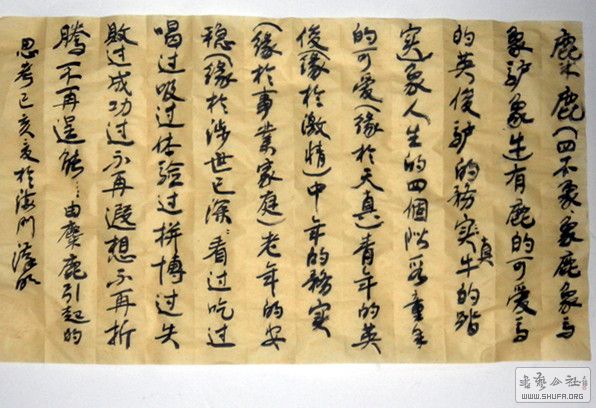 麋鹿(四不象象鹿象馬
象驴象牛有鹿的可爱馬
的英俊驴的務实牛的踏
真
实)象人生的四個階段童年
的可爱(缘於天真)青年的英
俊(缘於激情)中年的務实
(缘於事業家庭)老年的安
稳(缘於涉世已深:看过吃过
喝过吸过体验过拼博过失
败过成功过不再遐想不再折
腾不再逞能…由麋鹿引起的
思考己亥夏於海門
书艺公社
WWW.SHUFA.ORG